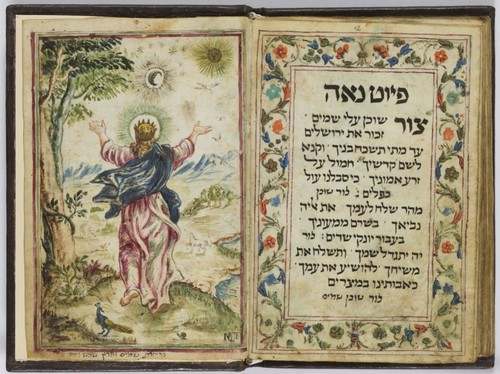 פיוט נאה
צור שוכן עלי שמים ׃
זכור את ירושלים
עד מתי תשכח בניך ׃ וקנא
לשם קדשיך ׃ חמול על
זרע אמוניך ׃ כי סבלנו עול
כפלים ׃ צור שוכן
מהר שלח לעמך ׃ את איה
נביאך ׃ בשרם ממעוניך ׃
בעבור יונקי שדים ׃ צור
יה יתגדל שמך ׃ ותשלח את
משיחך ׃ להושיע את עמך ׃
כאבותינו במצרים
צור שוכן
שמים